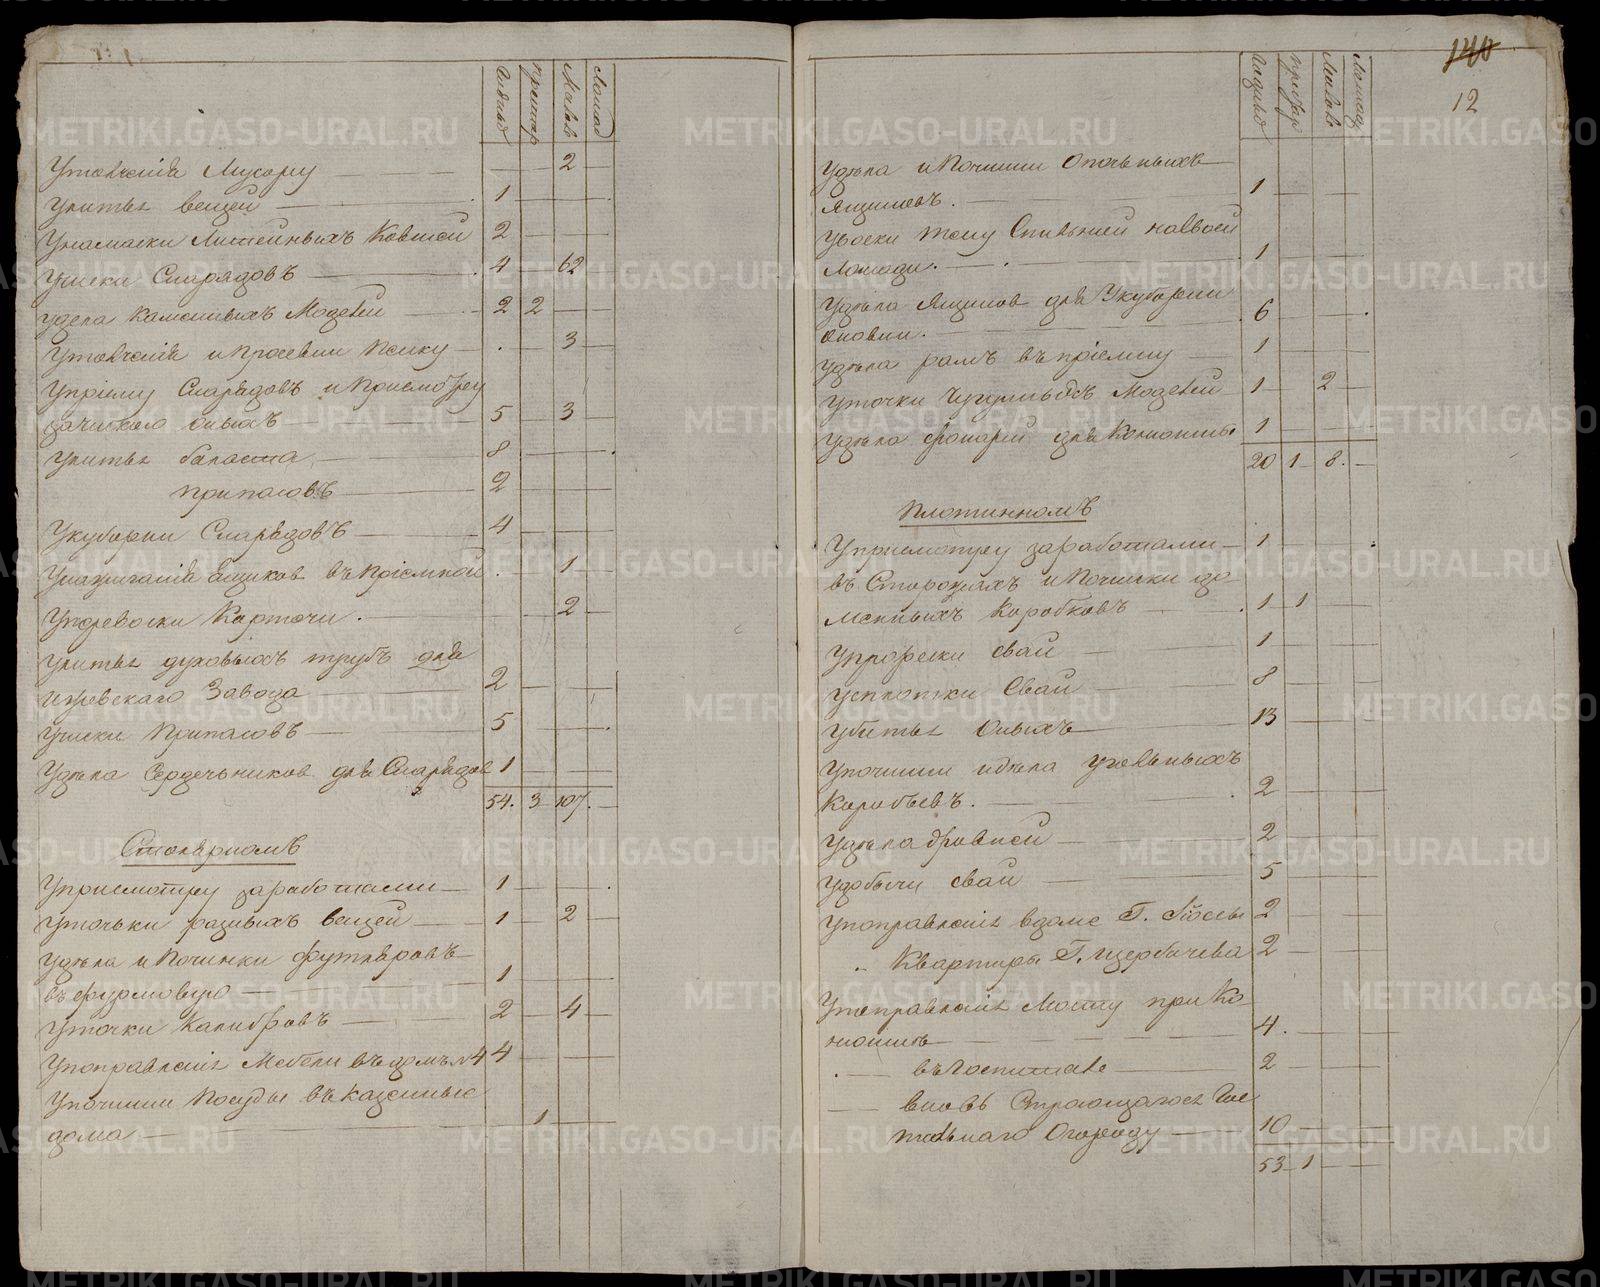 Годных Престар Малол Лошад
Утолчения Мусору — — 2 —
Улитья вещей — 1 — — —
Унамаски Литейныхъ Ковшей 2 — — —
Учиски Снарядовъ — 4 — 62 —
Удела каменныхъ Моделей — 2 2 — —
Утолчения и просевки песку — — 3 —
Уприему Снарядовъ и Присмотру
зачисткою оныхъ — 5 — 3 —
Улитья баласта — 8 — — —
припасовъ — 2 — — —
Укупорки Снарядовъ — 4 — — —
ящиков въ приемной — 1 —
Уперевоски Карточи — 2 —
Улитья духовыхъ трубъ для
Ижевскаго Завода — 2 — — —
Учиски Припасовъ — 5 — — —
Удела Сердечников для Снарядов 1 — — —
54. 3 107. —
Столярномъ
Уприсмотру заработами — 1 — — —
Уточки разныхъ вещей — 1 — 2 —
Удела и Починки футляровъ
въ формовую — 1 — — —
Уточки Калибровъ — 2 — 4 —
Упоправления Мебели въ домъ №4 4 — — —
Упочинки Посуды въ казенные
дома — 1 — —
140
12
Годных престар Малол Лошад
Удела и Починки Опочныхъ
Ящиковъ. — 1 — — —
Увоски Тесу Спильней на своей
Лошади. — 1 — — —
Удела Ящиков для Укупорки
оковки. — 6 — — —
Удела рамъ въ приемну — 1 — — —
Уточки Чугунныхъ Моделей 1 — 2 —
Удела фонарей для Конюшни 1 — — —
20 1 8. —
Плотинномъ
Уприсмотру заработами — 1 — — —
въ Сторожахъ и Починки до
менныхъ Коробковъ — 1 1 — —
Упрорески свай — 1 — — —
Усплотки Свай — 8 — — —
Убитья Оныхъ — 13 — — —
Упочинки идела угольныхъ
Коробьевъ. — 2 — — —
Удела дровней — 2 — — —
Удобычи свай — 5 — — —
Упоправления вдоме Г. 2 — — —
„ Квартиры Г. Щербачева 2 — — —
Упоправления Мосту при Ко
нюшне — 4. — — —
— въ Госпитале — 2 — — —
— вновь Строющагося Гос
тальнаго Огороду — 10 — — —
53 1 — —
METRIKI.GASO-URAL.RU